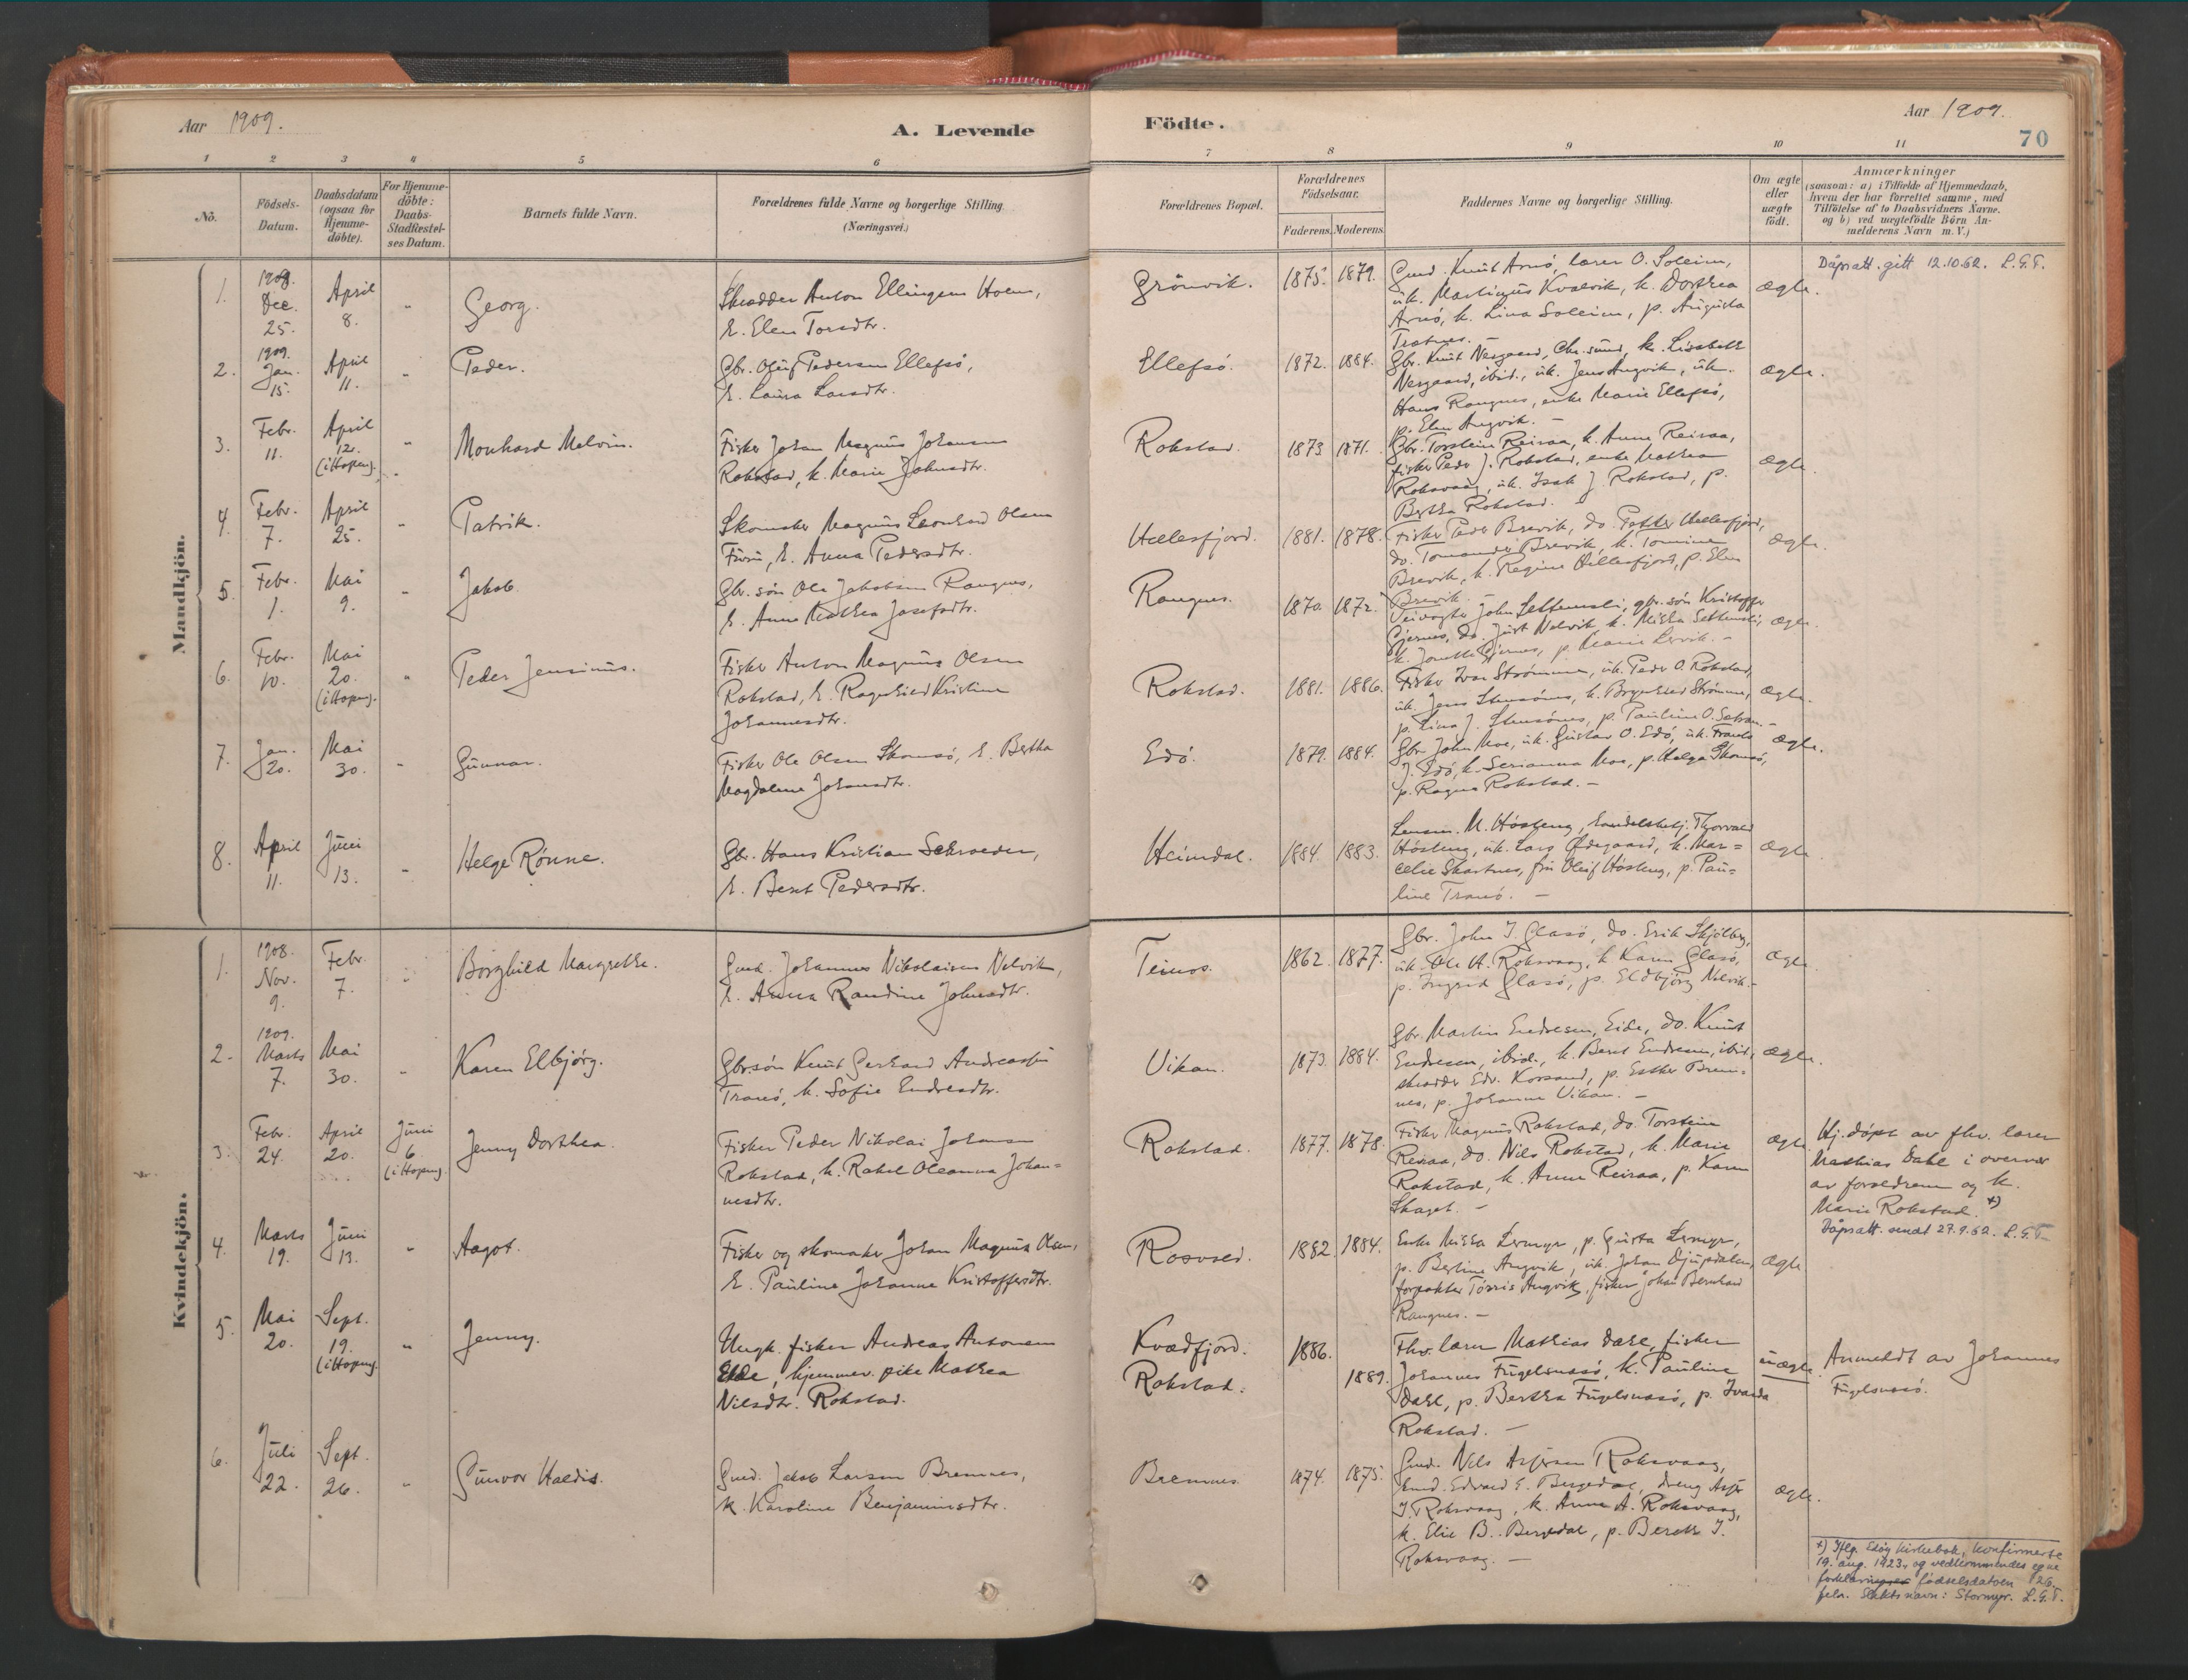 Aar 1909.
A. Levende
Födte.
Aar 1909.
70
1 2 3 4 5 6 7 8 9 10 11
No.
Födsels-Datum.
Daabsdatum (ogsaa for Hjemme-döbte).
For Hjemme-döbte: Daabs-Stadfæstel-ses Datum.
Barnets fulde Navn.
Forældrenes fulde Navne og borgerlige Stilling. (Næringsvei.)
Forældrenes Bopæl.
Forældrenes Födselsaar.
Faderens. Moderens.
Faddernes Navne og borgerlige Stilling.
Om ægte eller uægte födt.
Anmærkninger
(saasom: a) i Tilfælde af Hjemmedaab,
hvem der har forrettet samme, med
Tilföielse af to Daabsvidners Navne,
og b) ved uægtefödte Börn An-
melderens Navn m. V.)
Mandkjön.
1. 1908 Dec. 25. April 8. " Georg.
Skrædder Anton Ellingsen Hoem,
k. Elen Torsdtr.
Grönvik. 1875. 1879.
Gmd. Knut Arnö, lærer O. Soleim,
uk. Martinus Kvalvik, k. Dorthea
Arnö, k. Lina Soleim, p. Augusta
ægte.
Dåpsatt. gitt 12.10.62. L.G.T.
2. 1909. Jan. 15. April 11. " Peder.
Gbr. Oluf Pedersen Ellefsö,
k. Laura Larsdtr.
Ellefsö. 1872. 1884.
Gbr. Knut Nesgaard, Chr.sund, k. Lisabeth
Nesgaard, ibid., uk. Jens Angvik, uk.
Hans Rangnes, enke Marie Ellefsö,
p. Elen Angvik. –
ægte.
3. Febr. 11. April 12. (i Hopen). " Monhard Melvin.
Fisker Johan Magnus Johansen
Rokstad, k. Marie Johnsdtr.
Rokstad. 1873 1871.
Gbr. Torstein Reiraa, k. Anne Reiraa,
fisker Peder J. Rokstad, enke Mathea
Roksvaag, uk. Isak J. Rokstad, p.
Bertha Rokstad.
ægte.
4. Febr. 7. April 25. " Patrik.
Skomaker Magnus Leonhard Olsen
k. Anna Pedersdtr.
Hellesfjord. 1881. 1878.
Fisker Peder Brevik, do. Petter Hellesfjord,
do. Tomander Brevik, k. Tomine
Brevik, k. Regine Hellesfjord, p. Elen
Brevik. –
ægte.
5. Febr. 1. Mai 9. " Jakob.
Gbr. sön Ole Jakobsen Rangnes,
k. Anne Mathea Josefsdtr.
Rangnes. 1870. 1872.
Veivogter John Settemsli, gbr. sön Kristoffer
Gjernes, do. Just Nelvik k. Mikka Settemsli,
k. Jonette Gjernes, p. Marie Lervik. –
ægte.
6. Febr. 10. Mai 20. (i Hopen). " Peder Jensinus.
Fisker Anton Magnus Olsen
Rokstad, k. Ragnhild Kristine
Johannesdtr.
Rokstad. 1881. 1886.
Fisker Ivar Strömmen, uk. Peder O. Rokstad,
uk. Jens Stensönes, k. Brynhild Strömmen,
p. Lina J. Stensönes, p. Pauline O.
ægte.
7. Jan. 20. Mai 30. " Gunnar.
Fisker Ole Olsen Skomsö, k. Bertha
Magdalene Johansdtr.
Edö. 1879. 1884.
Gbr. John Moe, uk. Gustav O. Edö, uk. Frants
J. Edö, k. Serianna Moe, p. Helga Skomsö,
p. Ragna Rokstad. –
ægte.
8. April 11. Juni 13. " Helge Rönne.
Gbr. Hans Kristian Schroeder,
k. Beret Pedersdtr.
Heimdal. 1884. 1883.
Lensm. M. Hösteng, handelsbetj. Thorvald
Hösteng, uk. Lars Ødegaard, k. Mar=
celie Skartnes, fru Oleif Hösteng, p. Pau=
line Tranö. –
ægte
Kvindekjön.
1. 1908. Nov. 9. Febr. 7. " Borghild Margrethe.
Gmd. Johannes Nikolaisen Nelvik,
k. Anna Randine Johnsdtr.
Teinos. 1862. 1877.
Gbr. John I. Glasö, do. Erik Skjölberg,
uk. Ole A. Roksvaag, k. Karen Glasö,
p. Ingrid Glasö, p. Eldbjörg Nelvik. –
ægte
2. 1909. Marts 7. Mai 30. " Karen Elbjörg.
Gbrsön Knut Gerhard Andreassen
Tranö, k. Sofie Endresdtr.
Vikan. 1873. 1884.
Gbr. Martin Endresen, Eide, do. Knut
Endresen, ibid., k. Beret Endresen, ibid.,
skrædder Edv. Korsand, p. Esther Brem=
nes, p. Johanna Vikan. –
ægte.
3. Febr. 24. April 20. Juni 6. (i Hopen). Jenny Dorthea.
Fisker Peder Nikolai Johansen
Rokstad, k. Rakel Oleanna Johan=
nesdtr.
Rokstad. 1877. 1878.
Fisker Magnus Rokstad, do. Torstein
Reiraa, do. Nils Rokstad, k. Marie
Rokstad, k. Anne Reiraa, p. Karen
Skaget. –
ægte
Hj. döpt av fhv. lærer
Mathias Dahl i overvær
av forældrene og k.
Marie Rokstad. x)
Dåpsatt. sendt 27.9.62. L.G.T.
4. Marts 19. Juni 13. " Aagot.
Fisker og skomaker Johan Magnus Olsen,
k. Pauline Johanne Kristoffersdtr.
Rosvold. 1882. 1884.
Enke Mikka Lermyr, p. Gusta Lermyr,
p. Berline Angvik, uk. Johan Djupdalen,
forpakter Törris Angvik, fisker Johan Bernhard
Rangnes. –
ægte
5. Mai 20. Sept. 19. (i Hopen). " Jenny.
Ungk. fisker Andreas Antonsen
Elde, hjemmev. pike Mathea
Nilsdtr. Rokstad.
Kvædfjord. 1886.
Rokstad. 1889.
Fhv. lærer Mathias Dahl, fisker
Johannes Fugelsnasö, k. Pauline
Dahl, p. Bertha Fugelsnasö, p. Ivarda
Rokstad. –
uægte.
Anmeldt av Johannes
Fugelsnasö.
6. Juli 22. Sept. 26. " Gunvor Haldis.
Gmd. Jakob Larsen Bremnes,
k. Karoline Benjaminsdtr.
Bremnes. 1874. 1875.
Gmd. Nils Asjersen Roksvaag,
Gmd. Edvard E. Bergedal, dreng Asjer
I. Roksvaag, k. Anne A. Roksvaag,
k. Elie B. Bergedal, p. Bereth I.
Roksvaag. –
ægte.
x) Iflg. Edøy kirkebok, konfirmerte
19. aug. 1923, og vedkommendes egne
fødselsdatoen 26.
febr. Slektsnavn: Stormyr. L.G.T.